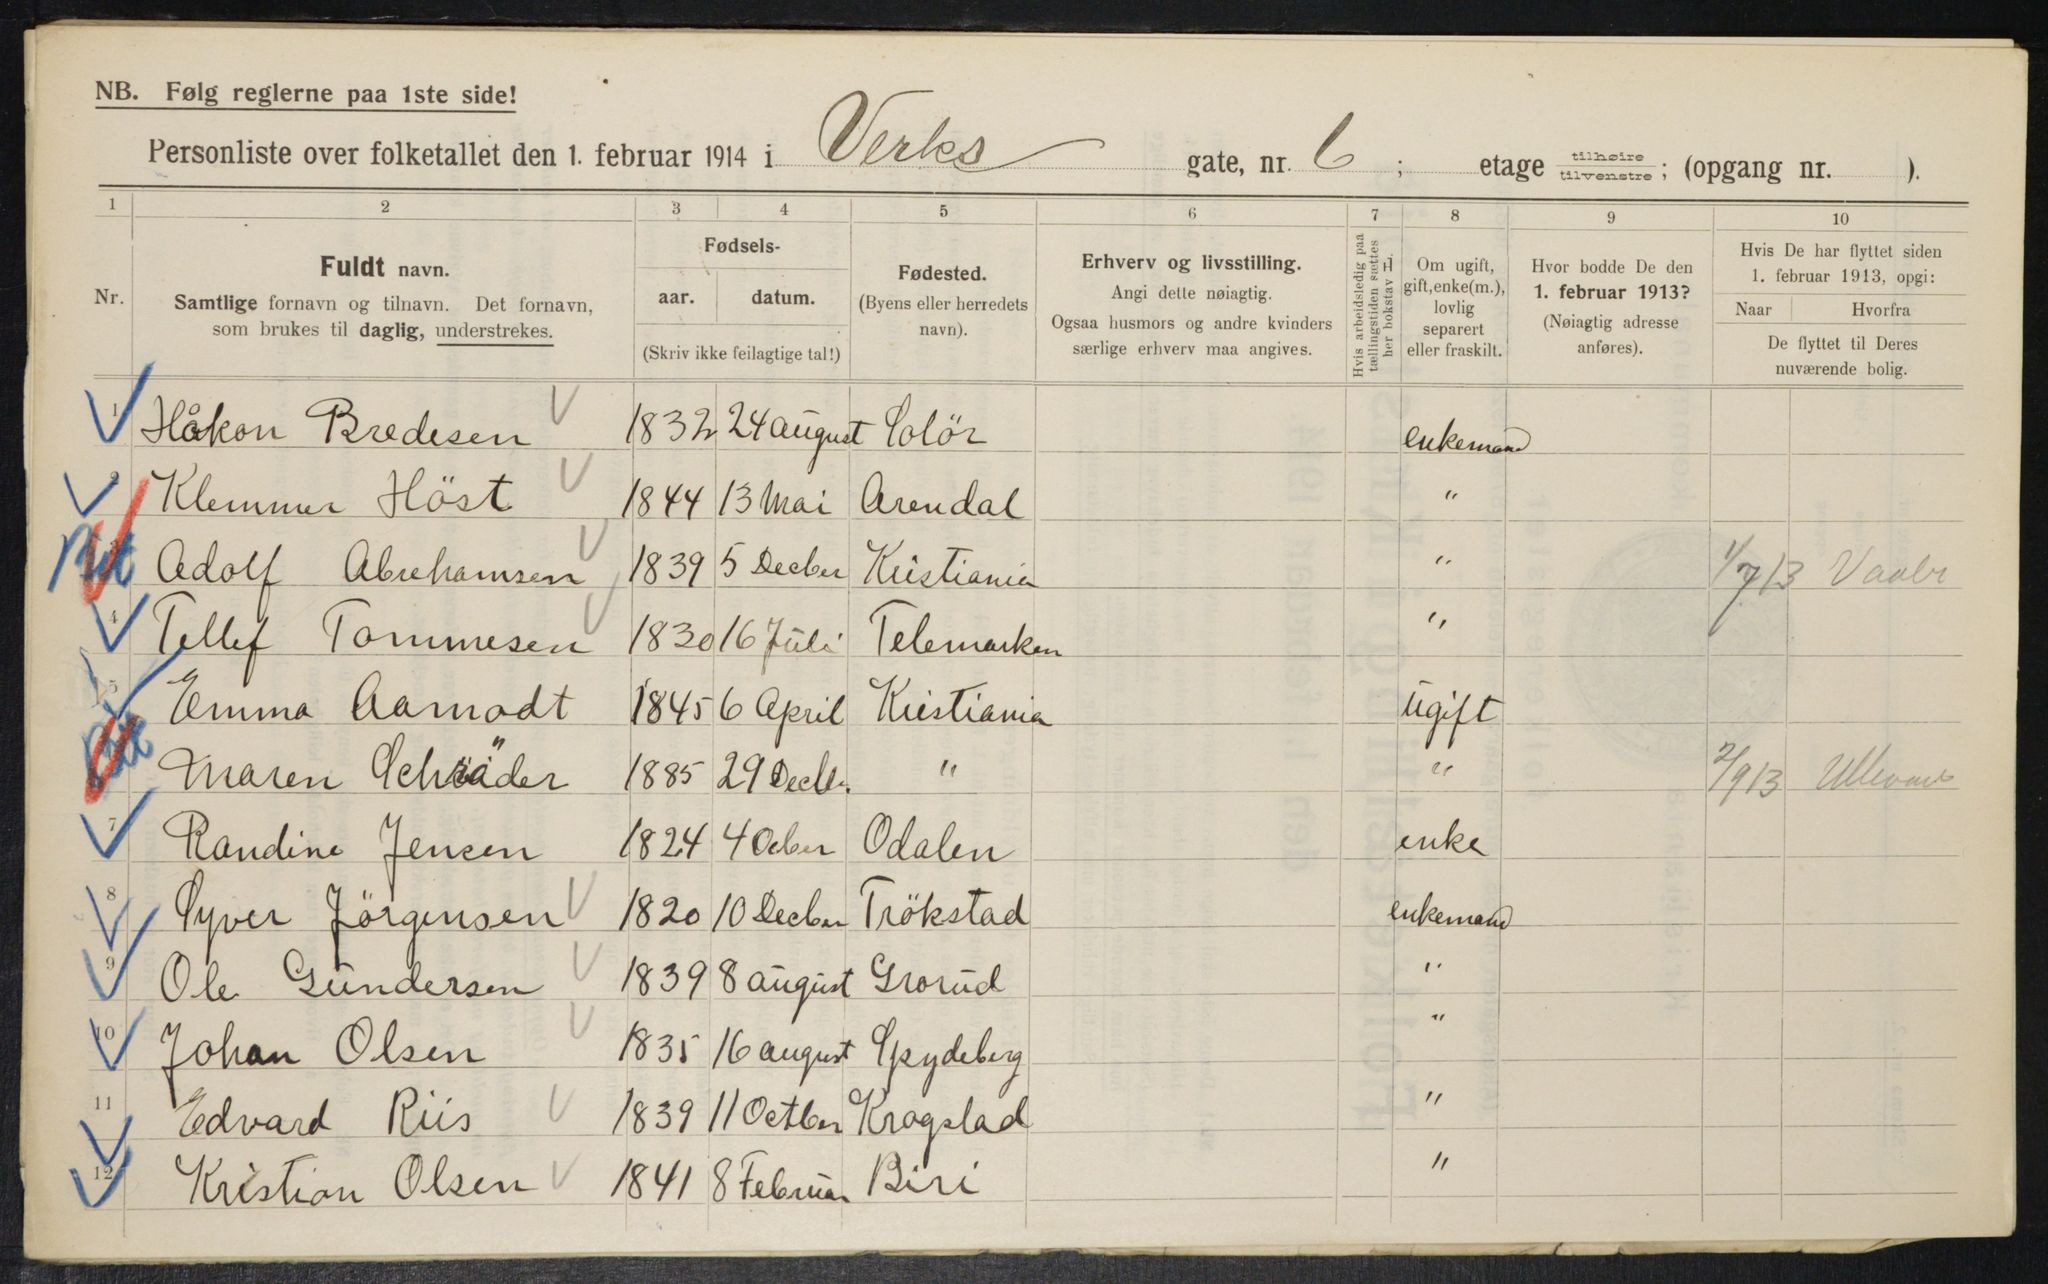 NB. Følg reglerne paa 1ste side!
Personliste over folketallet den 1. februar 1914 i Verks gate, nr. 6 ; etage tilhøire tilvenstre ; (opgang nr. ).
1 2 3 4 5 6 7 8 9 10
Nr.
Fuldt navn.
Samtlige fornavn og tilnavn. Det fornavn,
som brukes til daglig, understrekes.
Fødsels-
aar. datum.
(Skriv ikke feilagtige tal!)
Fødested.
(Byens eller herredets
navn).
Erhverv og livsstilling.
Angi dette nøiagtig.
Ogsaa husmors og andre kvinders
særlige erhverv maa angives.
Hvis arbeidsledig paa
tællingstiden sættes
her bokstav L
Om ugift,
gift, enke(m.),
lovlig
separert
eller fraskilt.
Hvor bodde De den
1. februar 1913?
(Nøiagtig adresse
anføres).
Hvis De har flyttet siden
1. februar 1913, opgi:
Naar Hvorfra
De flyttet til Deres
nuværende bolig.
1 Håkon Bredesen 1832 24 august Solör enkemand
2 Klemmer Höst 1844 13 Mai Arendal "
3 Adolf Abrehamsen 1839 5 Decber Kristiania " 1/7 13
4 Tellef Tommesen 1830 16 Juli Telemarken "
5 Emma Aamodt 1845 6 April Kristiania ugift
Maren Schrøder 1885 29 Decbr. " " 2/9 13
7 Randine Jensen 1824 4 Ocber Odalen enke
8 Syver Jörgensen 1820 10 Decber Trökstad enkemand
9 Ole Gundersen 1839 8 august Grorud "
10 Johan Olsen 1835 16 august Spydeberg "
11 Edvard Riis 1839 11 Octber Krogstad "
12 Kristian Olsen 1841 8 Februar Biri "